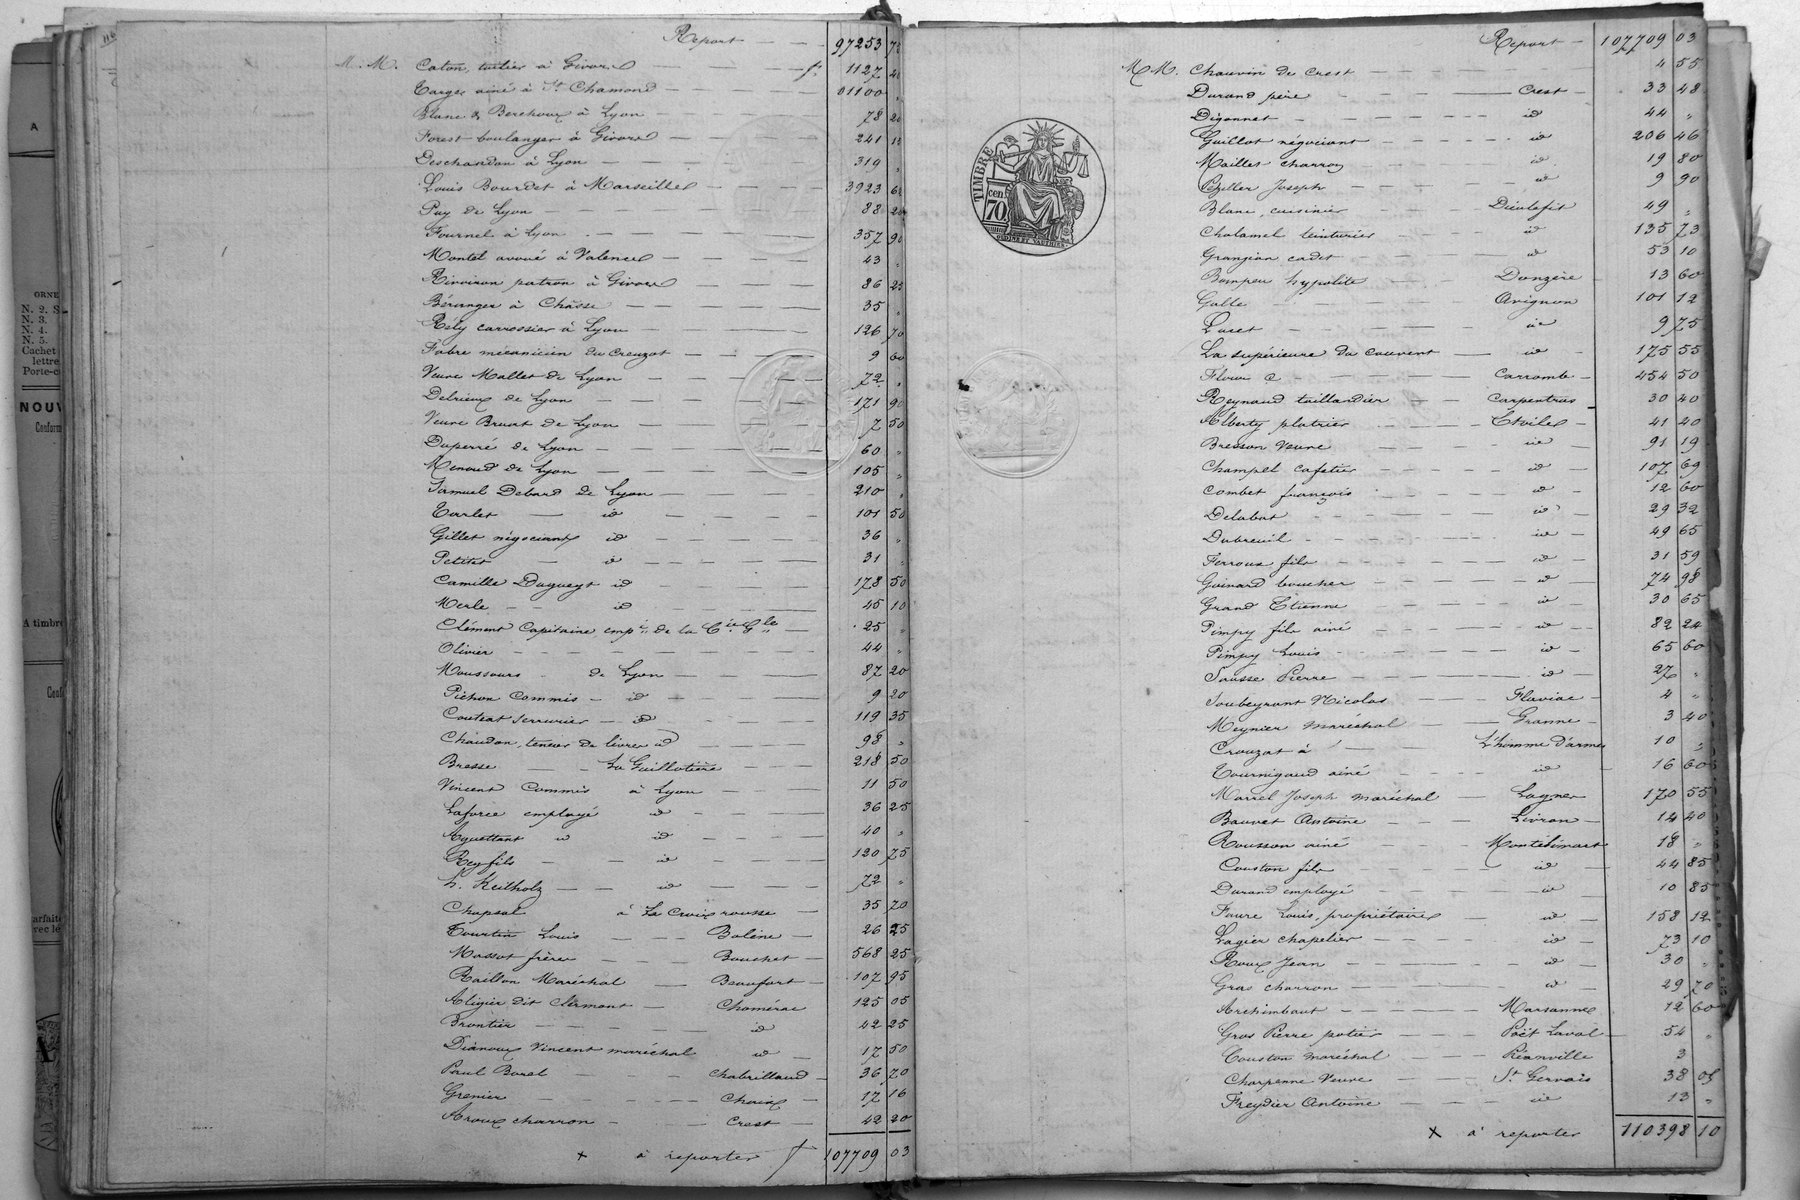 116
Report — 97253 75
M.M. Caton, tuilier à Givors — fs 1127 40
Targe ainé à St Chamond — 01100 "
Blanc & Berchoux à Lyon — 78 20
Forest boulanger à Givors — 241 15
Deschandon à Lyon — 319 "
Louis Bourdet à Marseille — 3923 65
Puy de Lyon — 88 20
Fournel à Lyon — 357 90
Montel avoué à Valence — 43 "
Rivoiron patron à Givors — 86 25
Béranger à Chasse — 35 "
Rély carrossier à Lyon — 126 70
Fabre mécanicien du Creuzot — 9 60
Veuve Mallet de Lyon — 72 "
Delrieux de Lyon — 171 90
Veuve Brunt de Lyon — 7 50
Duperré de Lyon — 60 "
Menoud de Lyon — 105 "
Samuel Debard de Lyon — 210 "
Tarlet — id — 101 50
Gillet négociant id — 36 "
Petitet — id — 31 "
Camille Dugueyt id — 178 50
Merle — id — 45 10
Clément Capitaine emp. de la Cie Gle — 25 "
Olivier — 44 "
Moussours de Lyon — 87 20
Pichon Commis — id — 9 20
Couteat serrurier — id — 119 35
Chaudon, teneur de livres id — 98 "
Bresse — La Guillotière — 218 50
Vincent Commis à Lyon — 11 50
Laforce employé id — 36 25
Aguettant id id — 40 "
Rey fils — id — 120 75
h. Keitholz — id — 72 "
Chapsal à La Croix rousse — 35 70
Tourtin Louis — Bolène — 26 25
Massot frères — Bouchet — 568 25
Raillon Maréchal — Beaufort — 107 95
Aligier dit Clermont — Chomérac 125 05
Brontier — id 42 25
Dianoux Vincent maréchal id — 17 50
Paul Borel — Chabrilland — 36 70
Grenier — Choix — 17 16
Aroux charron — Crest — 42 20
+ à reporter f 107709 03
Report — 107709 03
M.M. Chauvin de Crest — 4 55
Durand père — Crest — 33 48
Digonnet — id 44 "
Guillot négociant — id 206 46
Maillet charron — id 19 80
Pezeller Joseph — id 9 90
Blanc, cuisinier — Dieulefit 49 "
Chalamel teinturier — id 135 73
Granjean cadet — id 53 10
Bompeu hypolite — Donzère 13 60
Galle — Avignon 101 12
Lucet — id 9 75
La supérieure du couvent — id — 175 55
Floux C — Carromb — 454 50
Reynaud taillandier — Carpentras 30 40
Alberty platrier — Etoile — 41 40
Bresson Veuve — id 91 19
Champel cafetier — id — 107 69
Combet françois — id — 12 60
Delabat — id — 29 32
Dubreuil — id — 49 65
Ferroux fils — id — 31 59
Guinard boucher — id — 74 98
Grand Etienne — id — 30 65
Pimpy fils ainé — id — 82 24
Pimpy Louis — id — 65 60
Sausse Pierre — id — 27 "
Soubeyrant Nicolas — Flaviac — 4 "
Meynier Maréchal — Granne — 3 40
Crouzat à — L'homme d'armes 10 "
Tournigaud ainé — id — 16 60
Marcel Joseph maréchal — Lagnes 170 55
Bauvet Antoine — Livron — 14 40
Rousson ainé — Montélimart 18 "
Couston fils — id — 44 85
Durand employé — id 10 85
Faure Louis, propriétaire — id — 158 12
Lagier chapelier — id — 73 10
Roux Jean — id — 30 "
Gras charron — id — 29 70
Archimbaut — Marsanne 12 60
Gros Pierre potier — Poët Laval — 54 "
Couston maréchal — Réauville 3
Charpenne Veuve — St Gervais 38 05
Freydier Antoine — id — 13 "
+ à reporter 110398 10
TIMBRE
cen.
70.
A
ORNE
N. 2. S
N. 3.
N. 4.
N. 5.
Cachet
lettre
Porte-c
NOUV
Conform
A timbre
Conf
arfaite
vec le